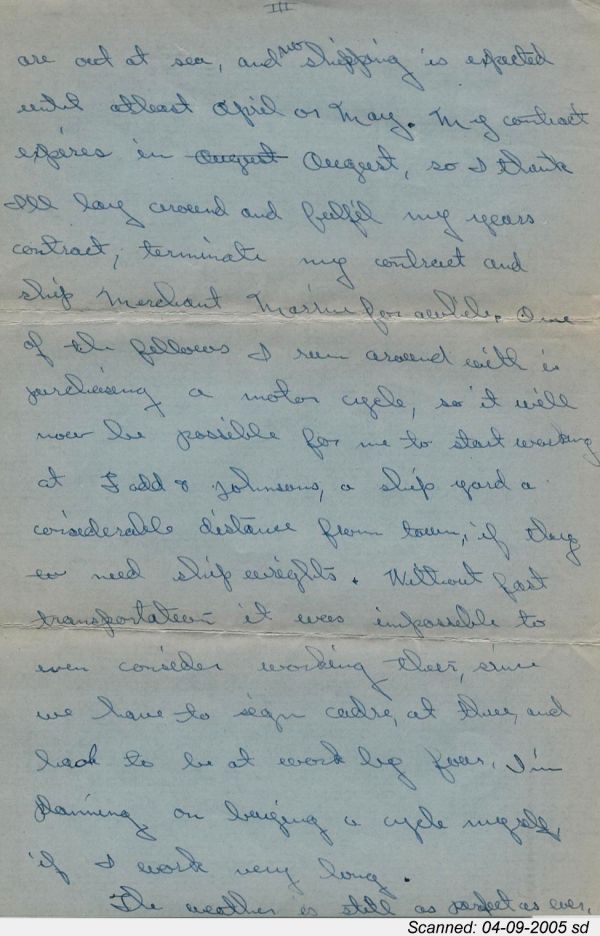 III
are out at sea, and no shipping is expected
until atleast April or May. My contract
expires in August August, so I think
I'll lay around and fulfil my years
contract, terminate my contract and
ship Merchant Marine for awhile. One
of the fellows I run around with is
purchasing a motor cycle, so it will
now be possible for me to start working
at Todd & Johnsons, a ship yard a
considerable distance from town, if they
need ship wrights. Without fast
transportation it was impossible to
even consider working there, since
we have to sign at three, and
back to be at work by four. I'm
planning on buying a cycle myself,
if I work very long.
The weather is still as perfect as ever,
Scanned: 04-09-2005 sd